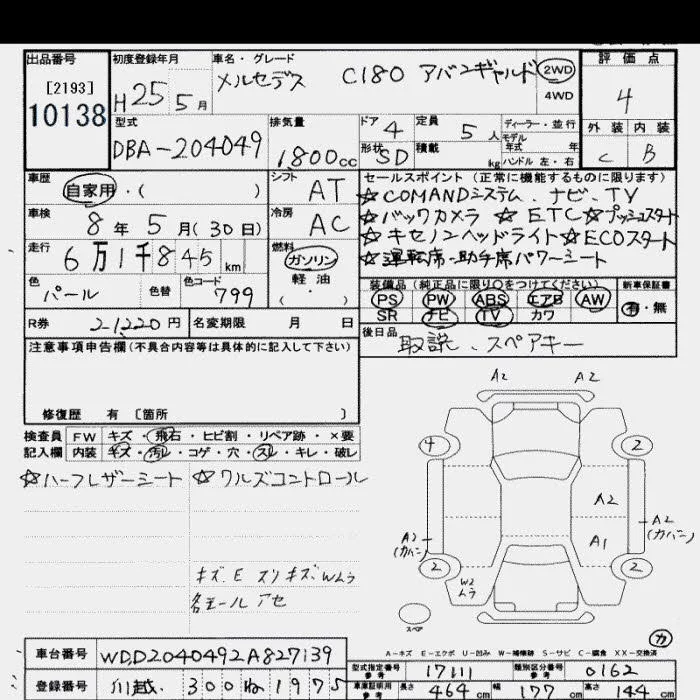 出品番号
[2193]
10138
初度登録年月
H 25 5月
車名・グレード
メルセデス C180 アバンギャルド
2WD
4WD
評価点
4
外装 内装
C B
型式
DBA-204049
排気量
1800cc
ドア 4
形状 SD
定員 5人
積載 kg
ディーラー・並行
モデル
年式 年
ハンドル 左・右
車歴
自家用・( )
シフト AT
車検
8年5月(30日)
冷房 AC
走行
6万1千845km
燃料
ガソリン
軽油
・( )
色
パール
色替
色コード
799
R券 21,220円
名変期限 月 日
セールスポイント(正常に機能するものに限ります)
☆COMANDシステム、ナビ、TV
☆バックカメラ ☆ETC☆プッシュスタート
☆キセノンヘッドライト☆ECOスタート
☆運転席・助手席パワーシート
装備品(純正品に限り○をつけてください)
新車保証書
PS PW ABS エアB AW
SR ナビ TV カワ
有・無
後日品
取説、スペアキー
注意事項申告欄(不具合内容等は具体的に記入して下さい)
修復歴 有 〔箇所 〕
検査員
記入欄
FW キズ・飛石・ヒビ割・リペア跡・×要
内装 キズ・汚レ・コゲ・穴・スレ・キレ・破レ
☆ハーフレザーシート ☆ワルズコントロール
キズ、E スリキズ、Wムラ
A2 A2
4 2
A2
A2
(カバン)
A2
(カバン)
A1
2 2
W2
ムラ
スペア
カ
A-キズ E-エクボ U-凹み W-補修跡 S-サビ C-腐食 XX-交換済
車台番号 WDD2040492A827139
登録番号 川越 300 ね 1975
型式指定番号
参考
17111
類別区分番号
参考
0162
車庫証明用
参考
長さ 464cm
幅 177cm
高さ 144cm